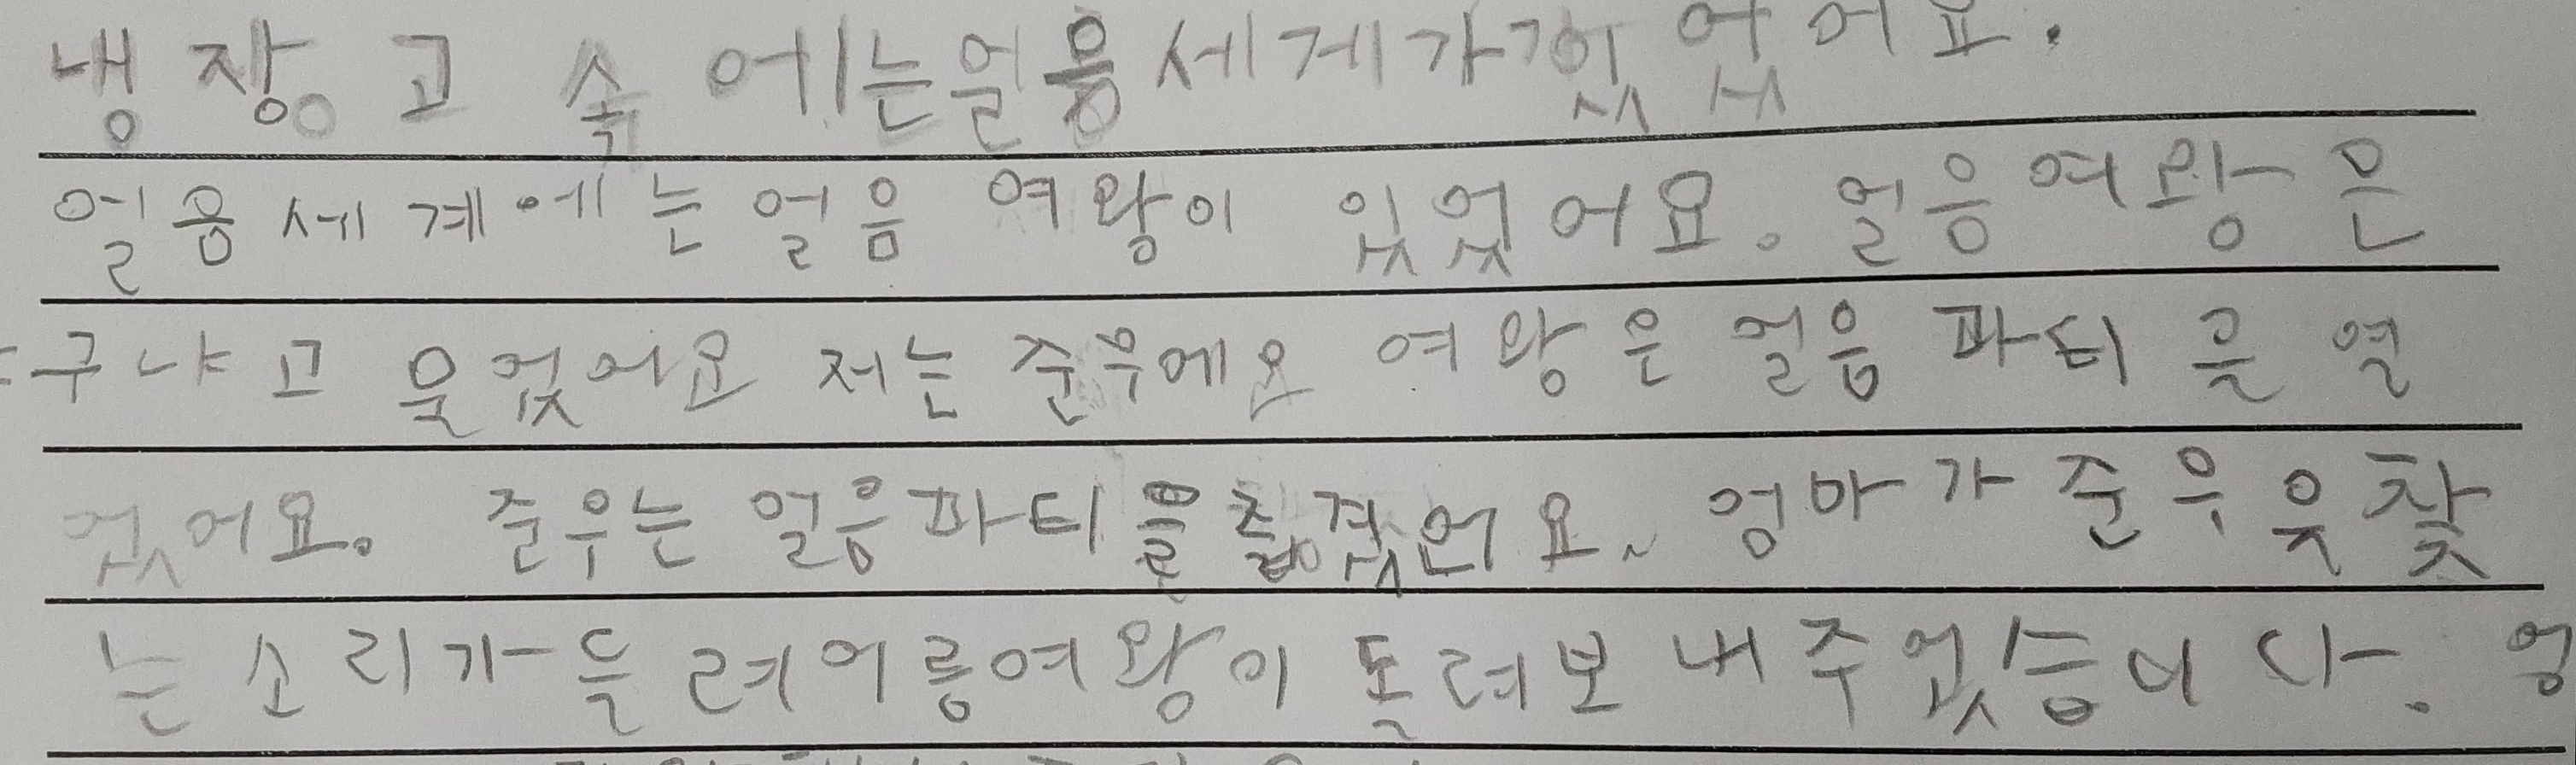 냉장고 속에는얼음세게가 있었어요.
얼음세계에는얼음 여왕이 있었어요. 얼음여왕은
구냐고 물었어요 저는 준우에요 여왕은 얼음파티를 열
었어요. 준우는 얼음파티를즐겼어요. 엄마가 준우을찾
는소리가들려어름여왕이 돌려보내주었습니다. 엄